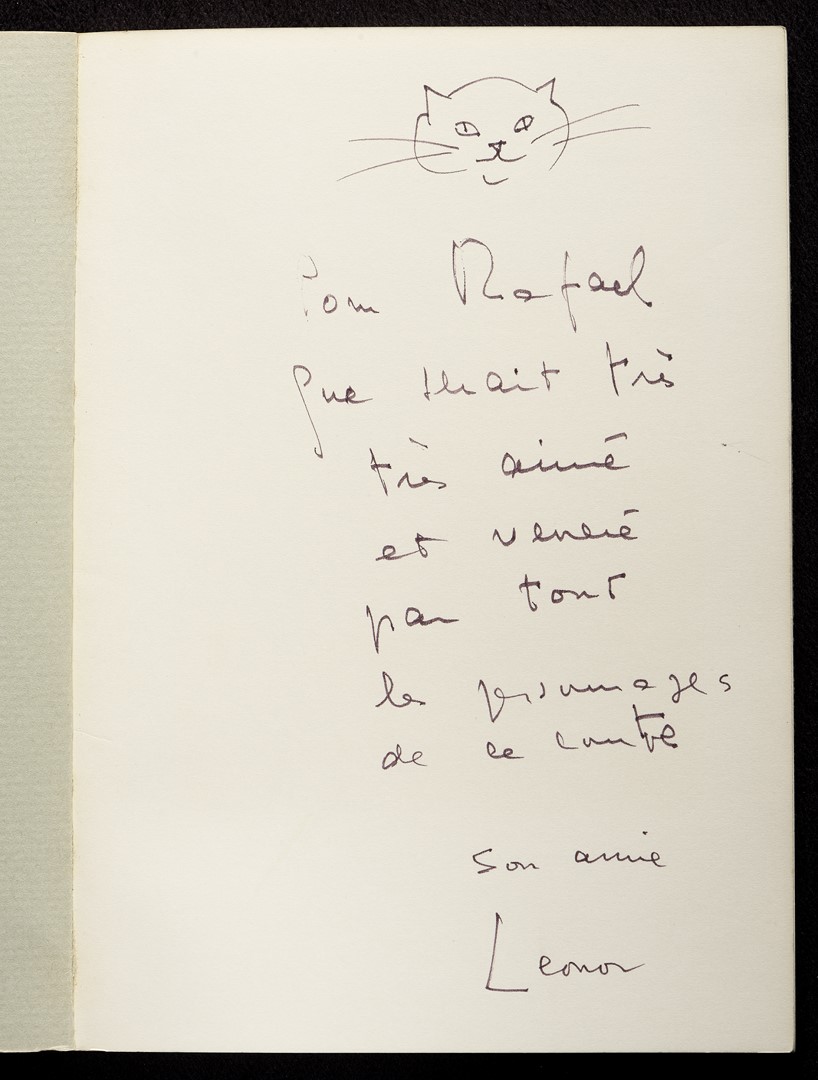 Pour Rafael
que serait très
très aimé
et veneré
par tout
les personnages
de ce conte
son amie
Leonor